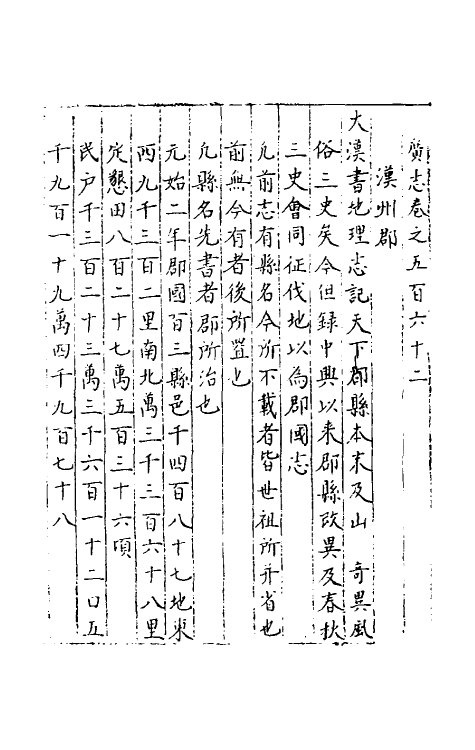 廣志卷之五百六十二
漢州郡
大漢書地理志記天下郡縣本末及山 奇異風
俗三史矣今但録中興以来郡縣改異及春秋
三史會同征伐地以為郡國志
凢前志有縣名今所不載者皆世祖所并省也
前無今有者後所置也
凢縣名先書者郡所治也
元始二年郡國百三縣邑千四百八十七地東
西九千三百二里南北萬三千三百六十八里
定懇田八百二十七萬五百三十六頃
民戸千三百二十三萬三千六百一十二口五
千九百一十九萬四千九百七十八